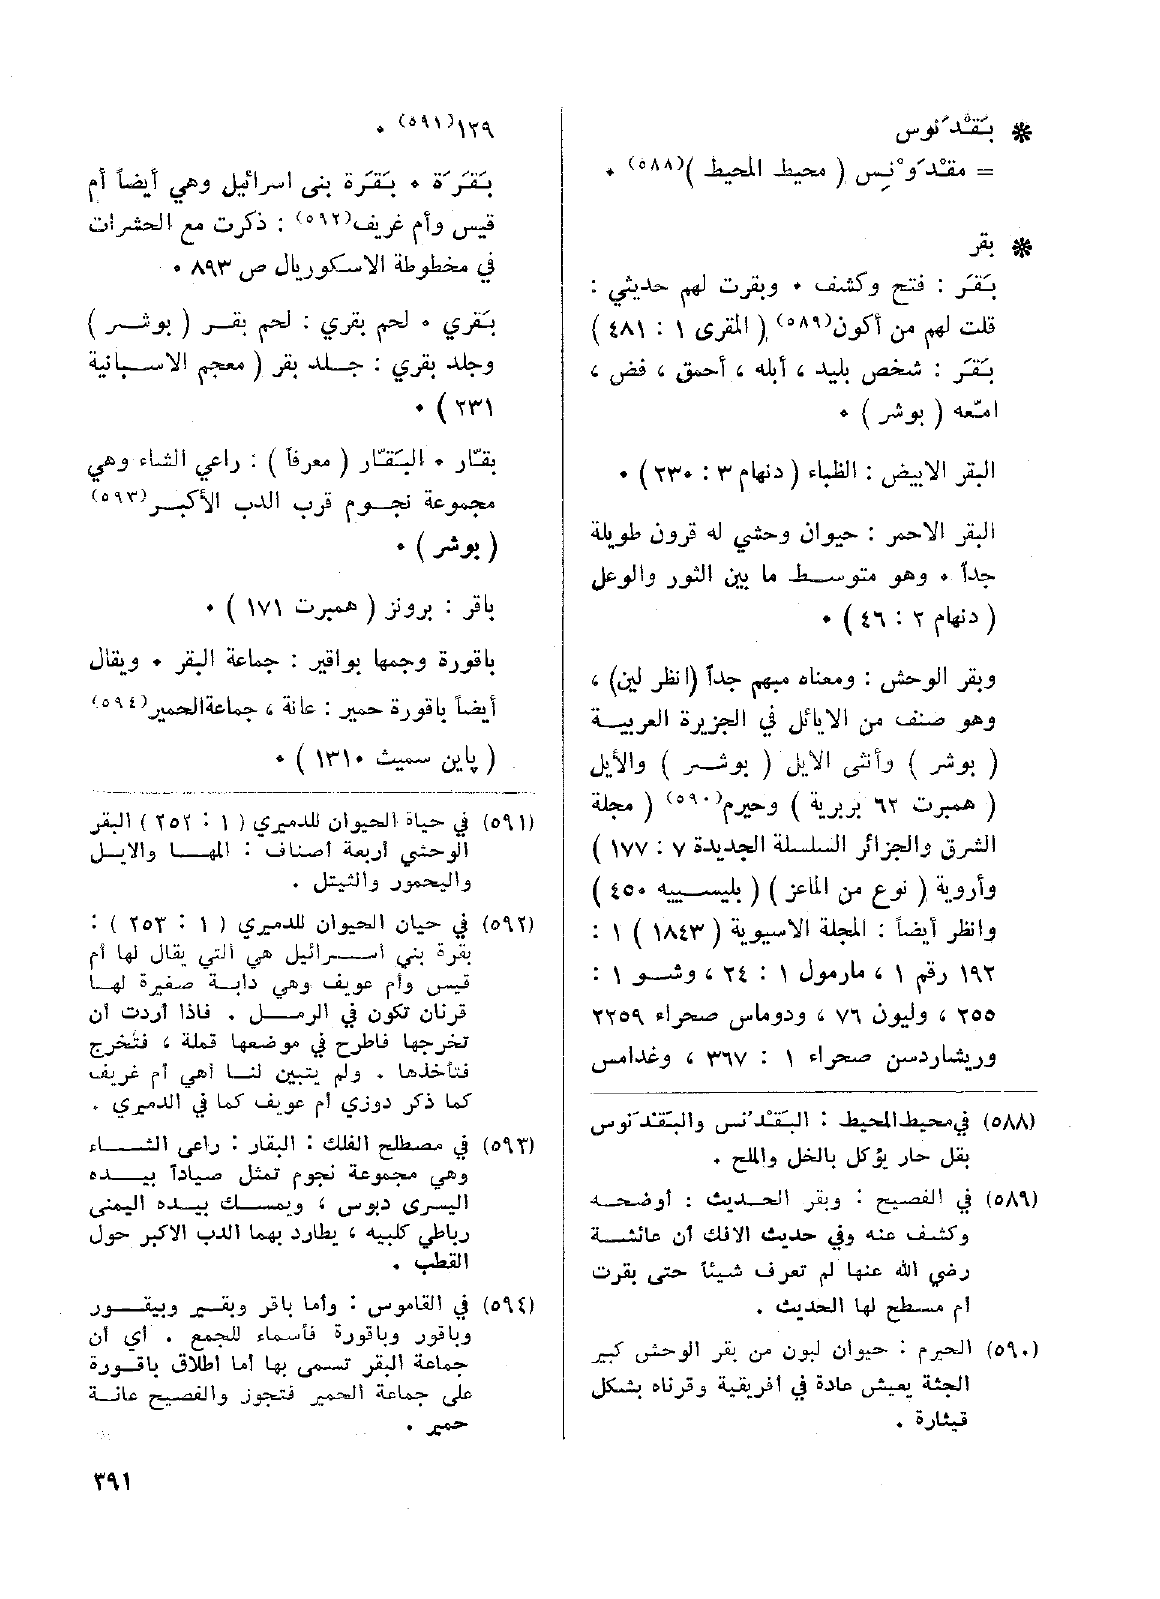 ❋ بَقْدَنوس
= مقْدَوْنِس ( محيط المحيط )(٥٨٨) ٠
❋ بقر
بَقَر : فتح وكشف ٠ وبقرت لهم حديثي :
قلت لهم من أكون(٥٨٩) ( المقرى ١ : ٤٨١ )
بَقَر : شخص بليد ، أبله ، أحمق ، فض ،
امّعه ( بوشر ) ٠
البقر الابيض : الظباء ( دنهام ٣ : ٢٣٠ ) ٠
البقر الاحمر : حيوان وحشي له قرون طويلة
جداً ٠ وهو متوسط ما بين الثور والوعل
( دنهام ٢ : ٤٦ ) ٠
وبقر الوحش : ومعناه مبهم جداً (انظر لين) ،
وهو صنف من الايائل في الجزيرة العربية
( بوشر ) وأنثى الايل ( بوشر ) والأيل
( همبرت ٦٢ بربرية ) وحيرم(٥٩٠) ( مجلة
الشرق والجزائر السلسلة الجديدة ٧ : ١٧٧ )
وأروية ( نوع من الماعز ) ( بليسييه ٤٥٠ )
وانظر أيضاً : المجلة الاسيوية ( ١٨٤٣ ) ١ :
١٩٢ رقم ١ ، مارمول ١ : ٢٤ ، وشو ١ :
٢٥٥ ، وليون ٧٦ ، ودوماس صحراء ٢٢٥٩
وريشاردسن صحراء ١ : ٣٦٧ ، وغدامس
(٥٨٨) في محيط المحيط : البَقْدُنس والبَقْدَنوس
بقل حار يؤكل بالخل والملح .
(٥٨٩) في الفصيح : وبقر الحديث : أوضحه
وكشف عنه وفي حديث الافك أن عائشة
رضي الله عنها لم تعرف شيئاً حتى بقرت
أم مسطح لها الحديث .
(٥٩٠) الحيرم : حيوان لبون من بقر الوحش كبير
الجثة يعيش عادة في افريقية وقرناه بشكل
قيثارة .
١٢٩(٥٩١) ٠
بَقَرَة ٠ بَقَرة بنى اسرائيل وهي أيضاً أم
قيس وأم غريف(٥٩٢) : ذكرت مع الحشرات
في مخطوطة الاسكوريال ص ٨٩٣ ٠
بَقَري ٠ لحم بقري : لحم بقر ( بوشر )
وجلد بقري : جلد بقر ( معجم الاسبانية
٢٣١ ) ٠
بقّار ٠ البَقّار ( معرفاً ) : راعي الشاء وهي
مجموعة نجوم قرب الدب الأكبر(٥٩٣)
( بوشر ) ٠
باقر : برونز ( همبرت ١٧١ ) ٠
باقورة وجمها بواقير : جماعة البقر ٠ ويقال
أيضاً باقورة حمير : عانة ، جماعةالحمير(٥٩٤)
( پاين سميث ١٣١٠ ) ٠
(٥٩١) في حياة الحيوان للدميري ( ١ : ٢٥٢ ) البقر
الوحشي أربعة أصناف : المها والايل
واليحمور والثيتل .
(٥٩٢) في حيان الحيوان للدميري ( ١ : ٢٥٣ ) :
بقرة بني اسرائيل هي التي يقال لها أم
قيس وأم عويف وهي دابة صغيرة لها
قرنان تكون في الرمل . فاذا أردت أن
تخرجها فاطرح في موضعها قملة ، فتخرج
فتأخذها . ولم يتبين لنا أهي أم غريف
كما ذكر دوزي أم عويف كما في الدميري .
(٥٩٣) في مصطلح الفلك : البقار : راعى الشاء
وهي مجموعة نجوم تمثل صياداً بيده
اليسرى دبوس ، ويمسك بيده اليمنى
رباطي كلبيه ، يطارد بهما الدب الاكبر حول
القطب .
(٥٩٤) في القاموس : وأما باقر وبقير وبيقور
وباقور وباقورة فأسماء للجمع . أي أن
جماعة البقر تسمى بها أما اطلاق باقورة
على جماعة الحمير فتجوز والفصيح عانة
حمير .
٣٩١